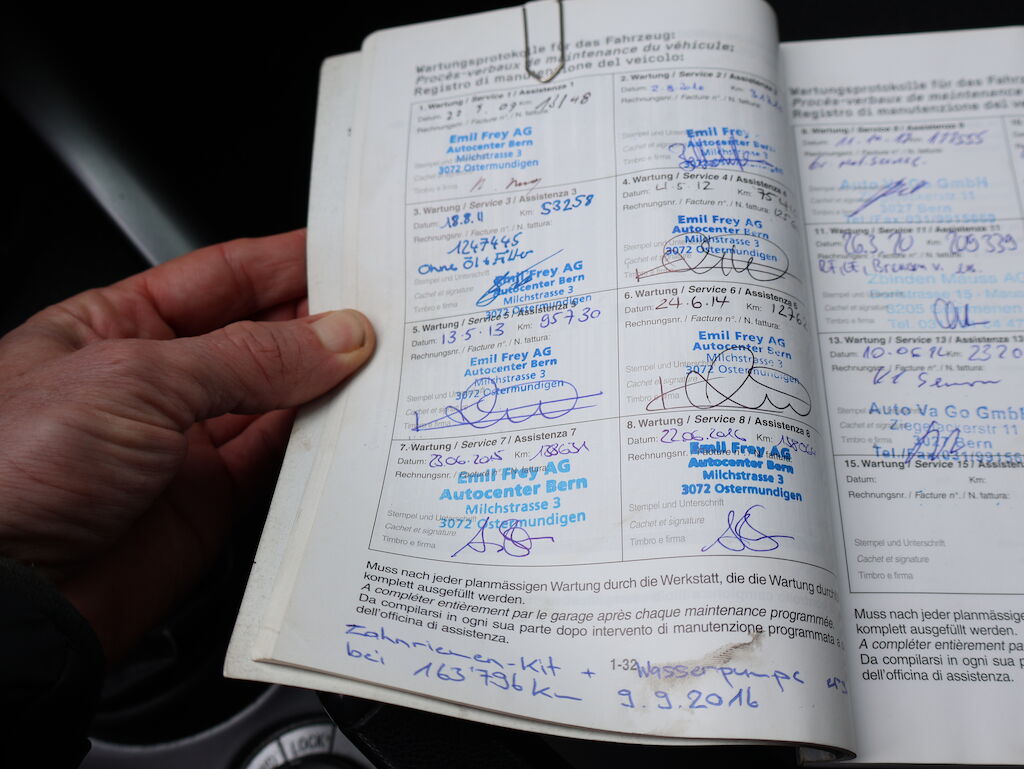 Wartungsprotokolle für das Fahrzeug:
Procès-verbaux de maintenance du véhicule;
Registro di manutenzione del veicolo:
1. Wartung / Service 1 / Assistenza 1
Datum: Km:
Rechnungsnr. / Facture n°. / N. fattura:
Emil Frey AG
Autocenter Bern
Milchstrasse 3
3072 Ostermundigen
Timbro e firma
2. Wartung / Service 2 / Assistenza
Datum: 2.8.2010 Km:
Rechnungsnr. / Facture n°. / N. fattura:
Emil Frey
Autocenter Bern
Milchstrasse 3
Timbro e
3. Wartung / Service 3 / Assistenza 3
Datum: 18.8.11 Km: 53258
Rechnungsnr. / Facture n°. / N. fattura:
1247445
Ohne Öl + Filter
Emil Frey AG
Autocenter Bern
Milchstrasse 3
3072 Ostermundigen
Cachet et signature
Timbro e firma
4. Wartung / Service 4 / Assistenza 4
Datum: 4.5.12 Km:
Rechnungsnr. / Facture n°. / N. fattura:
Emil Frey AG
Autocenter Bern
Milchstrasse 3
3072 Ostermundigen
5. Wartung / Service 5 / Assistenza 5
Datum: 13.5.13 Km: 95730
Rechnungsnr. / Facture n°. / N. fattura:
Emil Frey AG
Autocenter Bern
Milchstrasse 3
3072 Ostermundigen
6. Wartung / Service 6 / Assistenza 6
Datum: 24.6.14 Km:
Rechnungsnr. / Facture n°. / N. fattura:
Emil Frey AG
Autocenter Bern
Milchstrasse 3
3072 Ostermundigen
7. Wartung / Service 7 / Assistenza 7
Datum: 23.06.2015 Km:
Rechnungsnr. / Facture n°. / N. fattura:
Emil Frey AG
Autocenter Bern
Milchstrasse 3
3072 Ostermundigen
Stempel und Unterschrift
Cachet et signature
Timbro e firma
8. Wartung / Service 8 / Assistenza 8
Datum: 22.06.2016 Km:
Rechnungsnr. / Facture n°. / N. fattura:
Emil Frey AG
Autocenter Bern
Milchstrasse 3
3072 Ostermundigen
Stempel und Unterschrift
Cachet et signature
Timbro e firma
Muss nach jeder planmässigen Wartung durch die Werkstatt, die die Wartung durch
komplett ausgefüllt werden.
A compléter entièrement par le garage après chaque maintenance programmée.
Da compilarsi in ogni sua parte dopo intervento di manutenzione programmata a
dell'officina di assistenza.
1-32
Zahnriemen-Kit + Wasserpumpe
bei 163'796 Km 9.9.2016
Wartungsprotokolle für das Fahrz
Procès-verbaux de maintenance
Registro di manutenzione del v
Auto Va Go GmbH
3027 Bern
11. Wartung / Service 11 / Assistenza
Datum: 26.3.20 Km: 209339
Rechnungsnr. / Facture n°. / N. fattura:
13. Wartung / Service 13 / Assistenza 13
Datum: 10.06 Km: 2320
Rechnungsnr. / Facture n°. / N. fattura:
Auto Va Go GmbH
Ziegelackerstr 11
Bern
15. Wartung / Service 15 / Assistenza
Datum: Km:
Rechnungsnr. / Facture n°. / N. fattura:
Stempel und Unterschrift
Cachet et signature
Timbro e firma
Muss nach jeder planmässigen
komplett ausgefüllt werden.
A compléter entièrement pa
Da compilarsi in ogni sua pa
dell'officina di assistenza.
LOCK